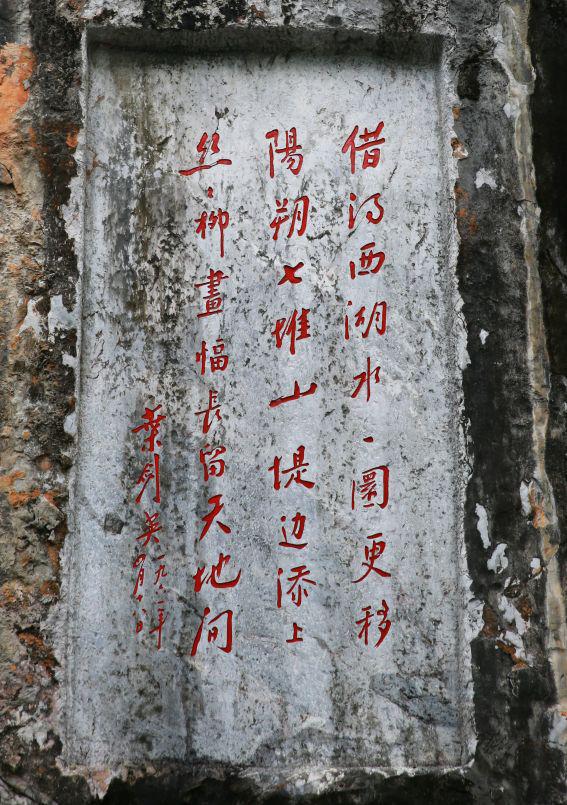 借得西湖水一圜更移
陽朔七堆山堤边添上
丝丶柳畫幅長留天地间
葉剑英一九六